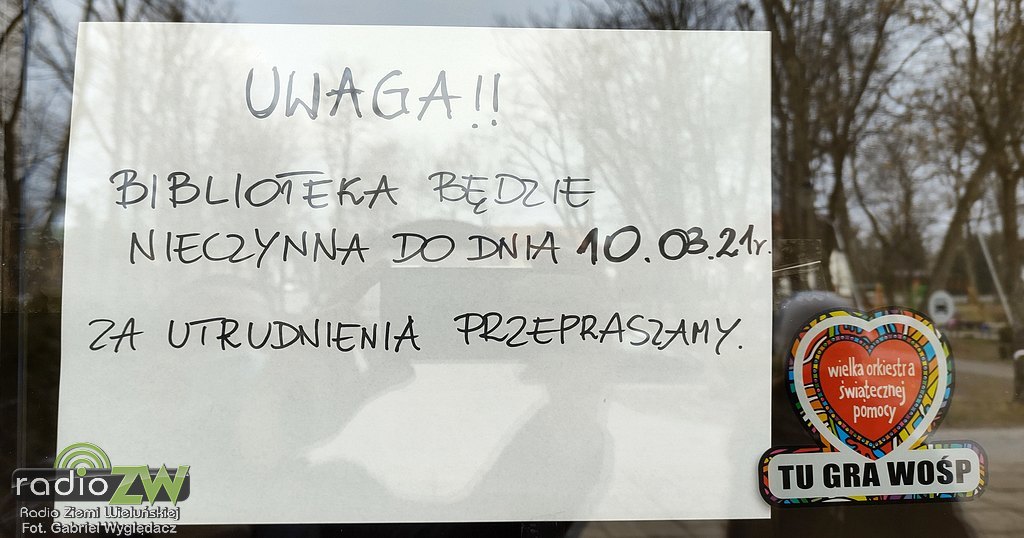 UWAGA!!
BIBLIOTEKA BĘDZIE
NIECZYNNA DO DNIA 10.03.21r.
ZA UTRUDNIENIA PRZEPRASZAMY.
wielka orkiestra
świątecznej
pomocy
TU GRA WOŚP
radio ZW
Radio Ziemi Wieluńskiej
Fot. Gabriel Wyględacz